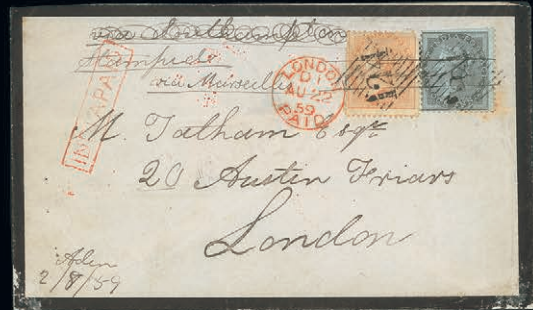 via Southampton
Stamped
via Marseilles
INDIA PAID
LONDON
D I
AU 22
59
PAID
M. Talham Esqre
20 Austin Friars
London
Aden
2/8/59